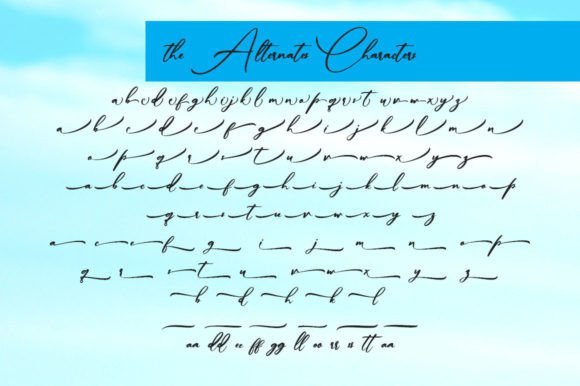 the Alternates Characters
a b c d e f g h i j k l m n o p q r s t u v w x y z
a b c d e f g h i j k l m n
o p q r s t u v w x y z
a b c d e f g h i j k l m n o p
q r s t u v w x y z
a c e f g i j m n o p
q r s t u v w x y z
b d h k l
aa dd ee ff gg ll oo rr ss tt aa